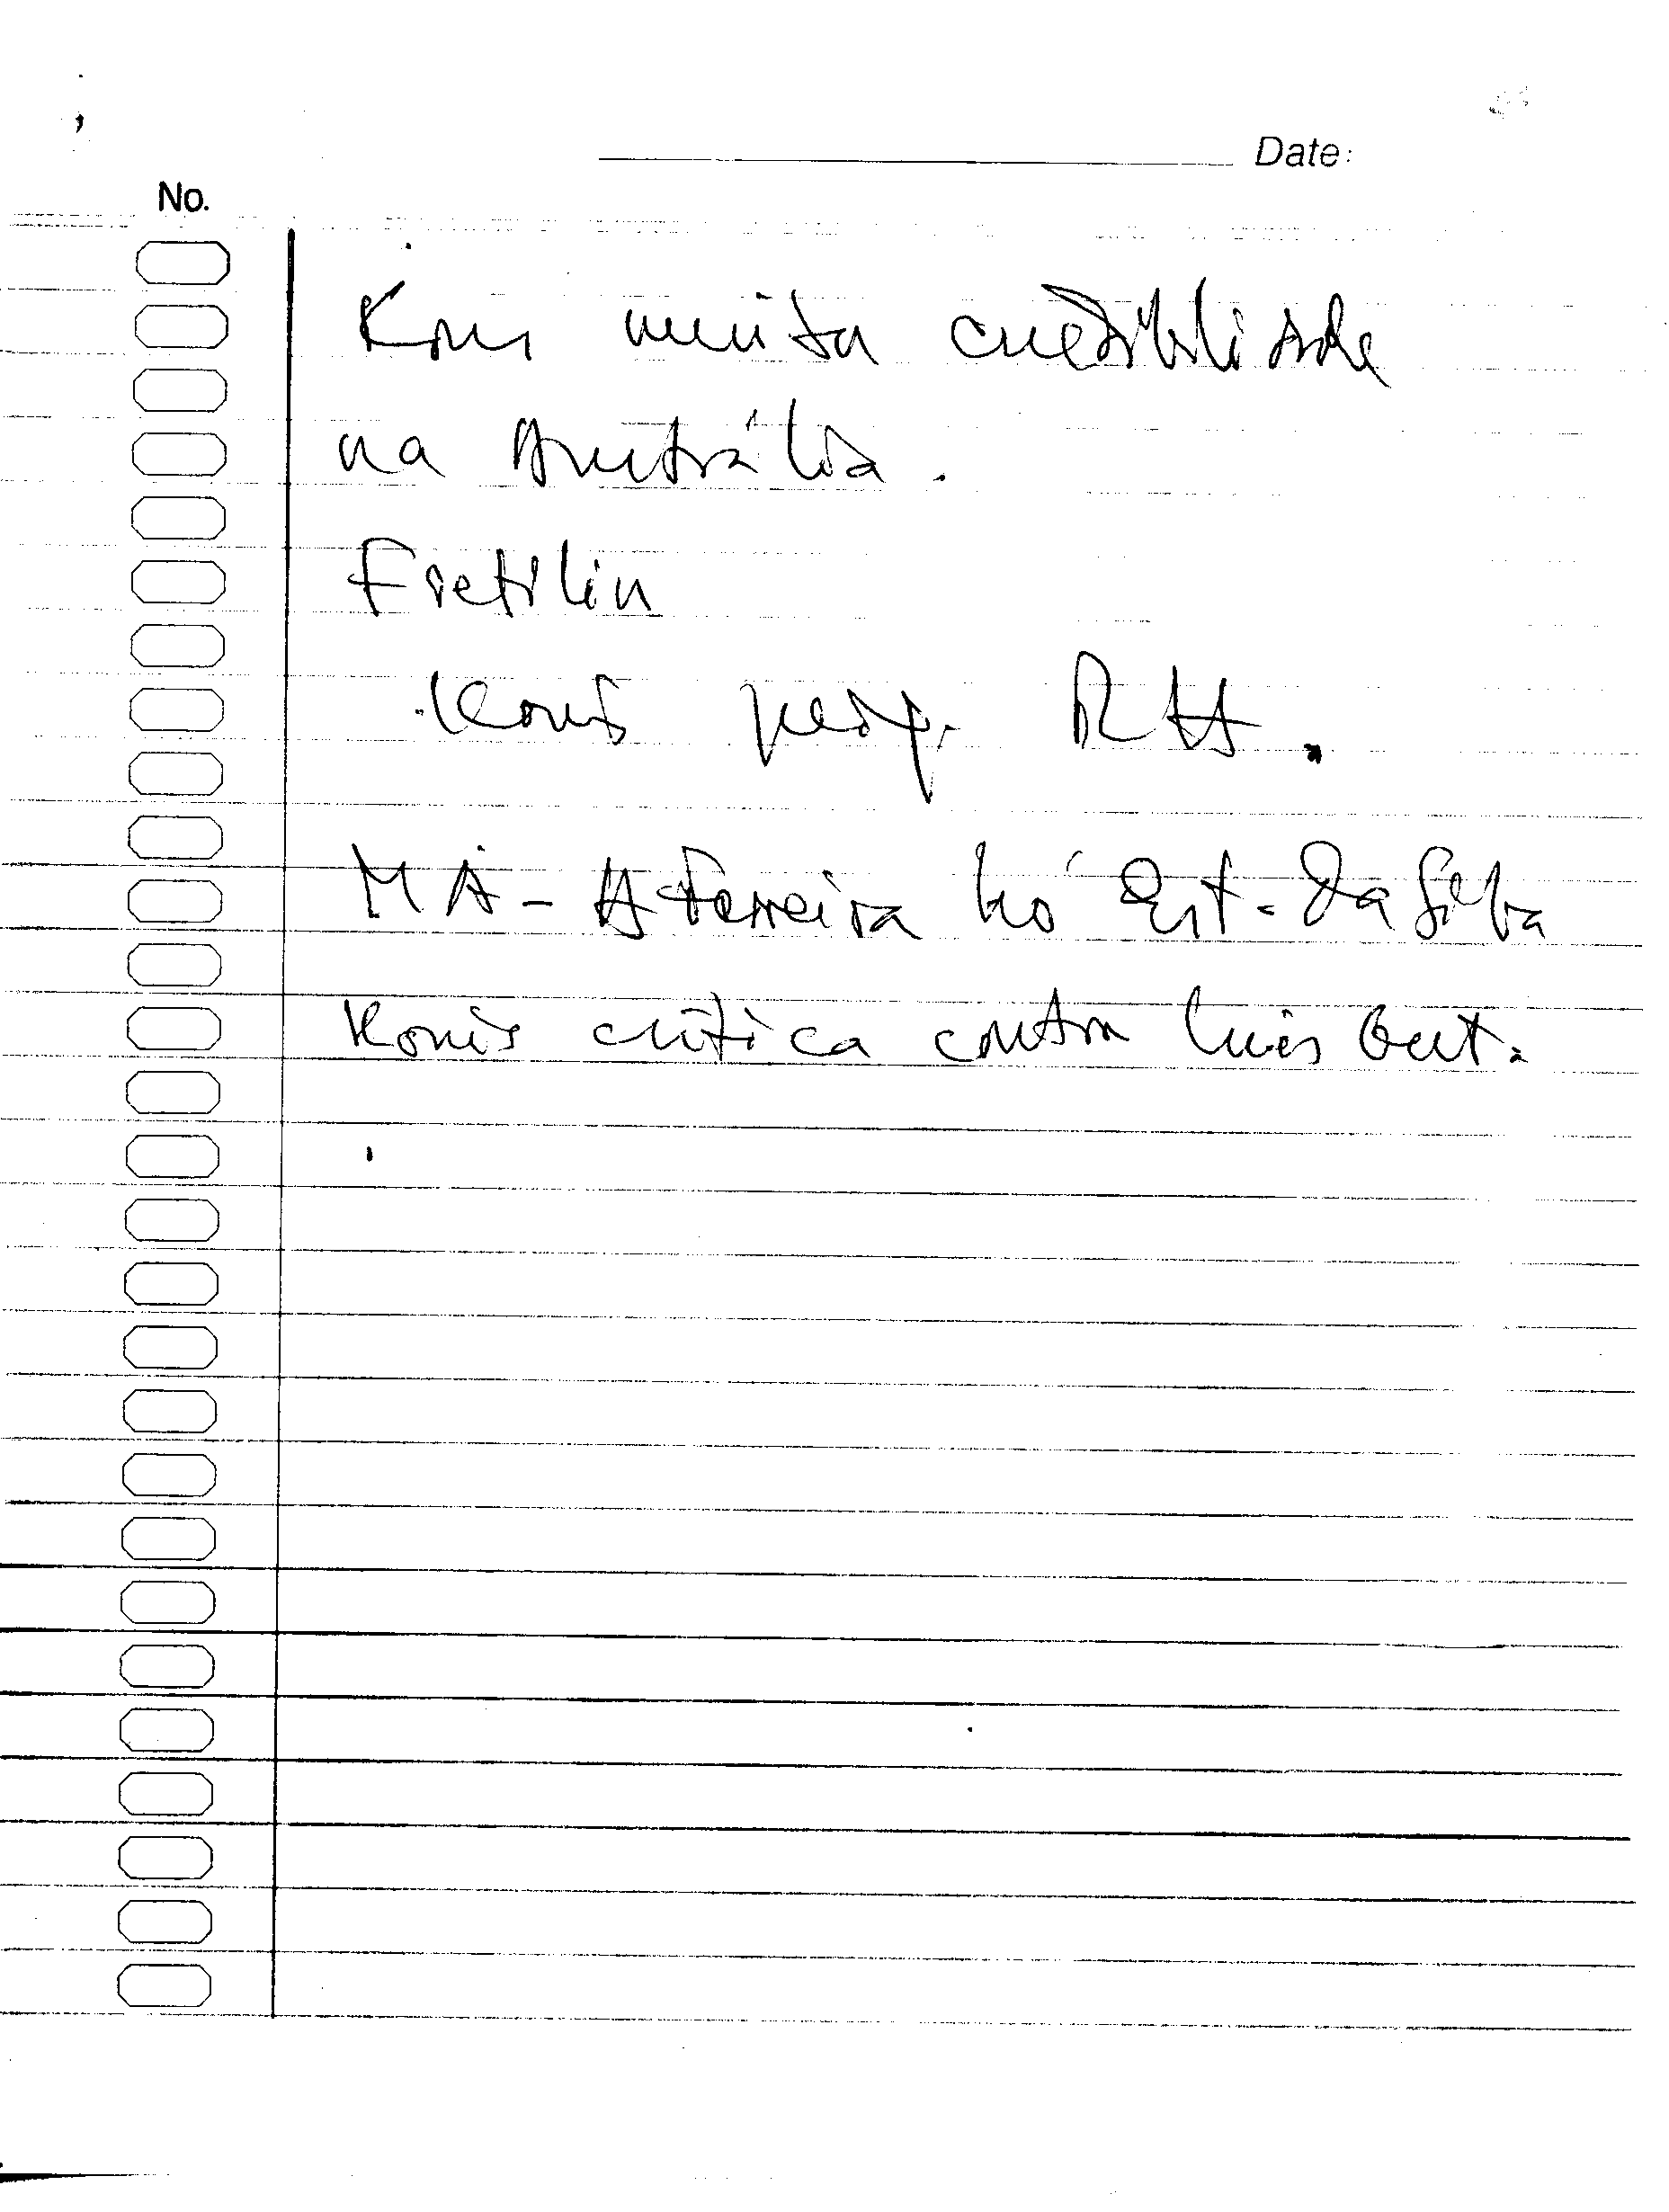 Date:
No.
Konis muita credibilidade
na Austrália.
Fretilin
Konis RH.
MA - A Ferreira ho Est. Da Silva
Konis critica contra